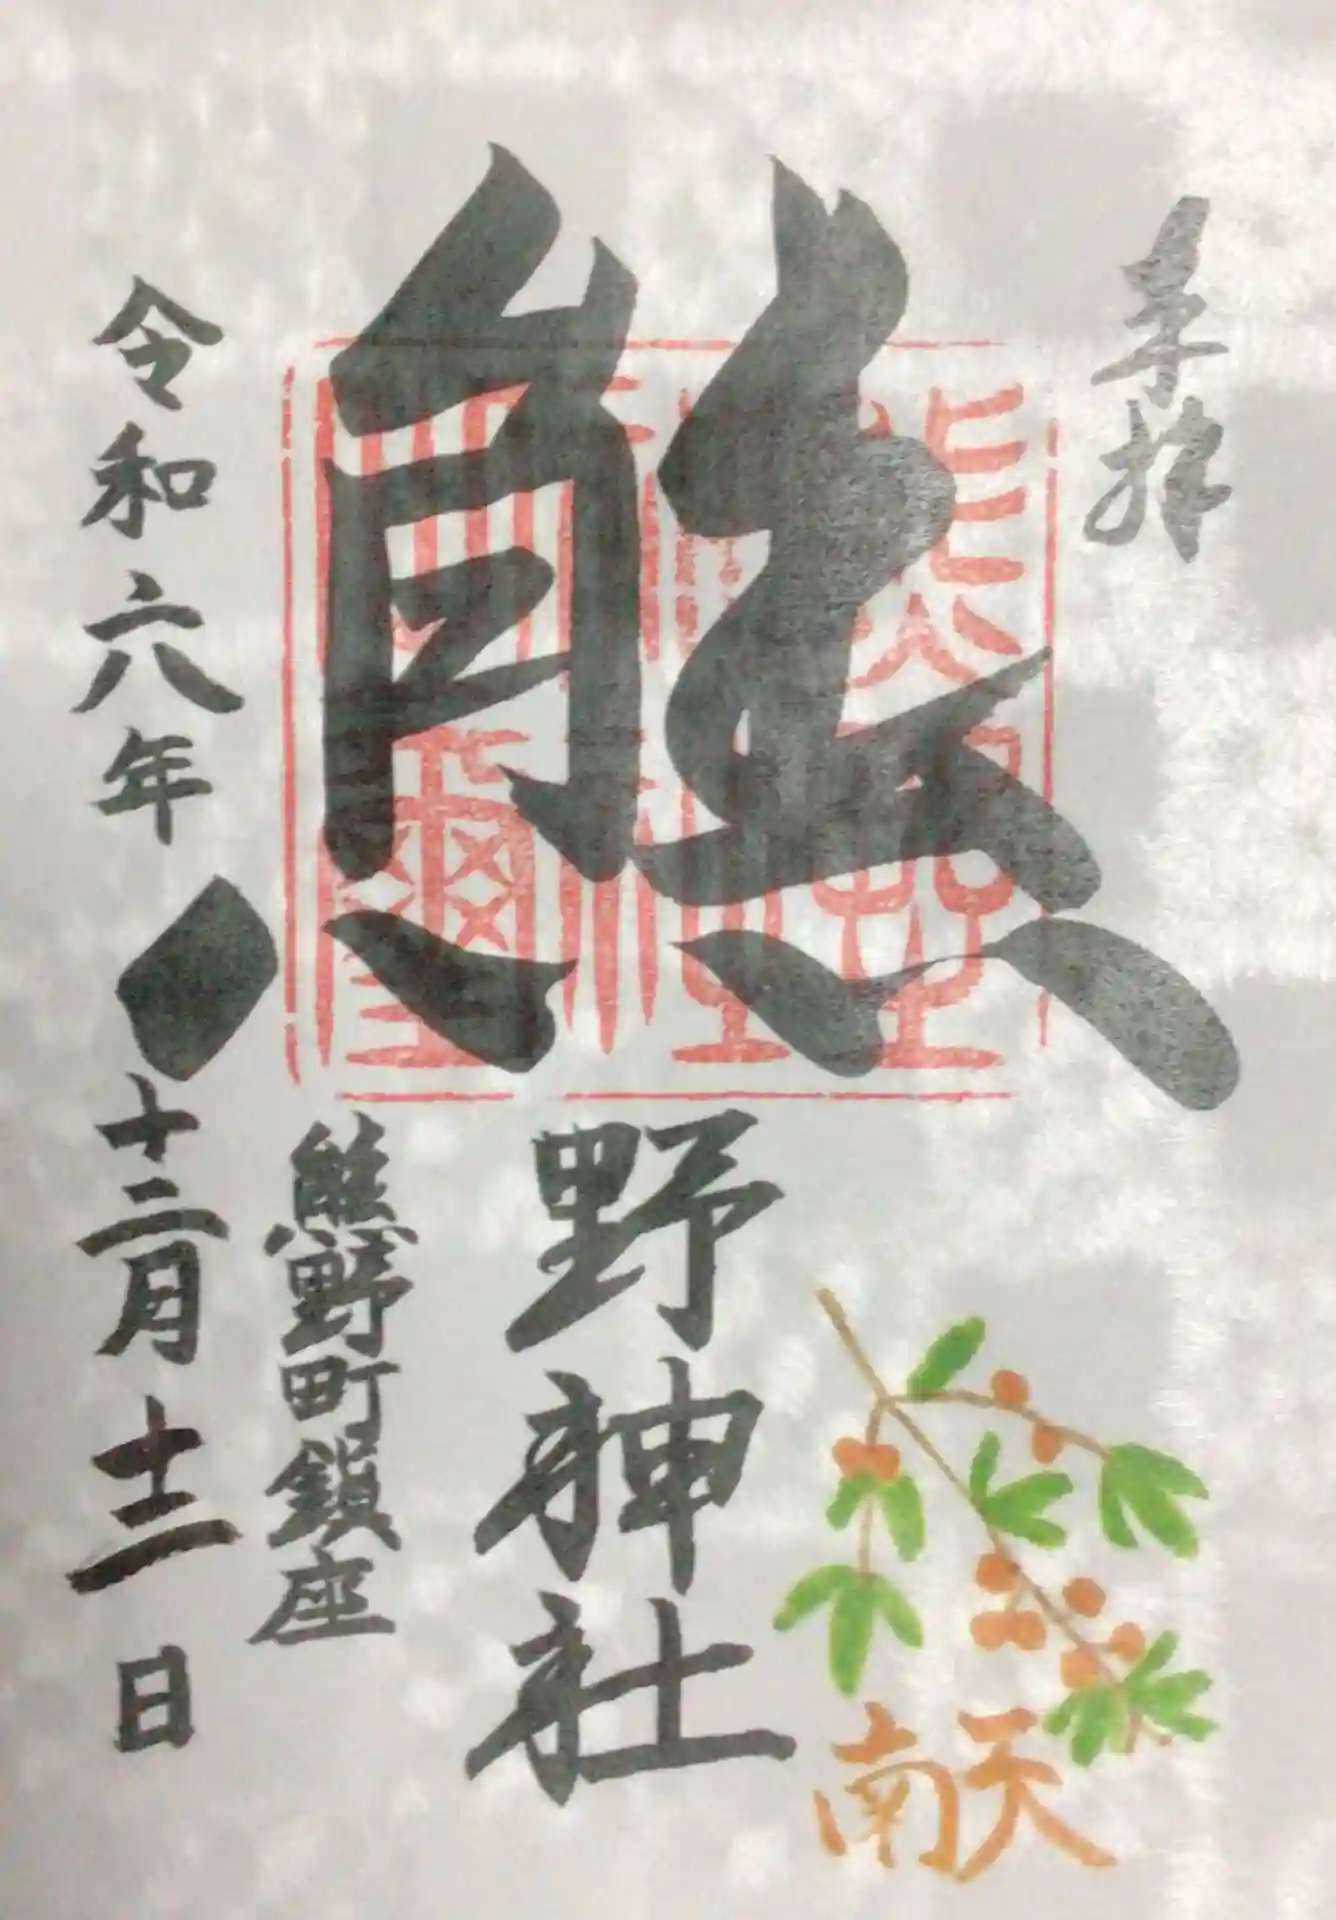 奉拝
熊野神社
熊野町鎮座
令和六年十二月十二日
南天